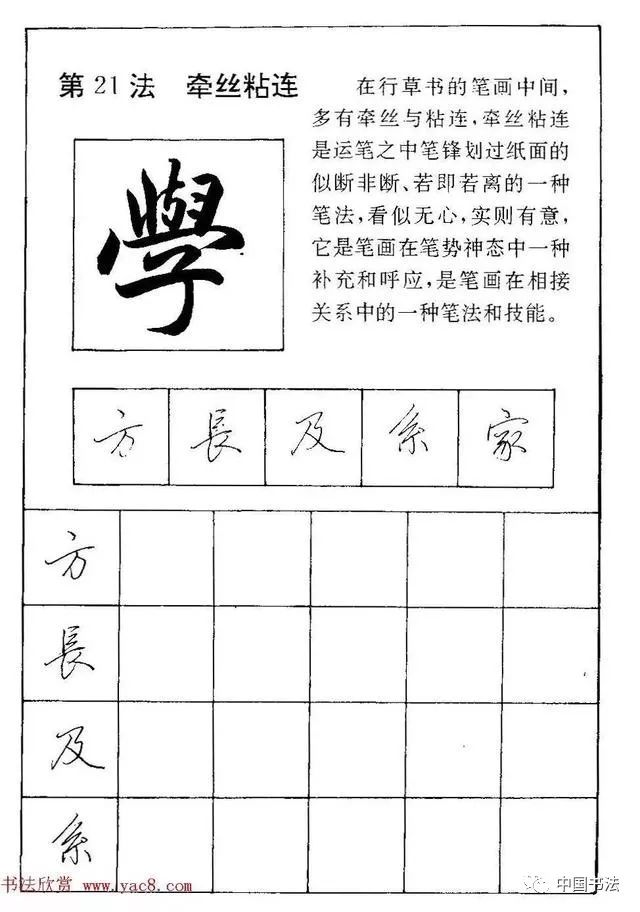 第21法 牵丝粘连
在行草书的笔画中间，
多有牵丝与粘连，牵丝粘连
是运笔之中笔锋划过纸面的
似断非断、若即若离的一种
笔法，看似无心，实则有意，
它是笔画在笔势神态中一种
补充和呼应，是笔画在相接
关系中的一种笔法和技能。
學
方 長 及 系 家
方
長
及
系
书法欣赏 www.yac8.com
中国书法